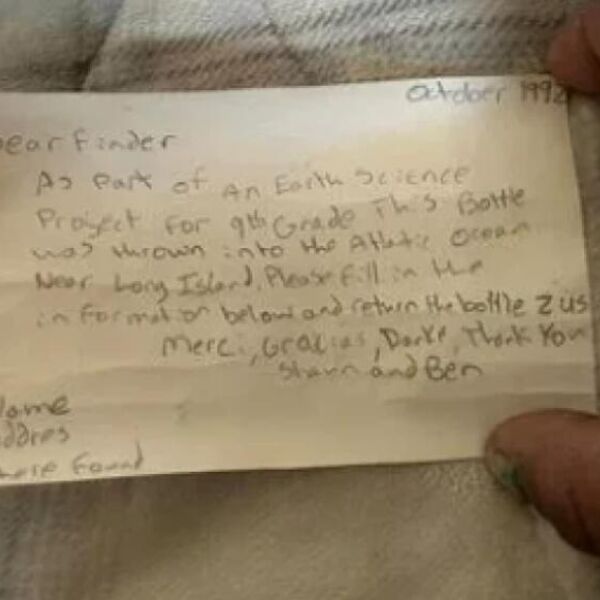 October 1992
ear Finder
As Part of An Earth Science
Project For 9th Grade This Bottle
was thrown into the Atlatic Ocean
Near Long Island. Please fill in the
information below and return the bottle 2 us
Merci, Gracias, Danke, Thank You
Shawn and Ben
ame
ddres
here Found